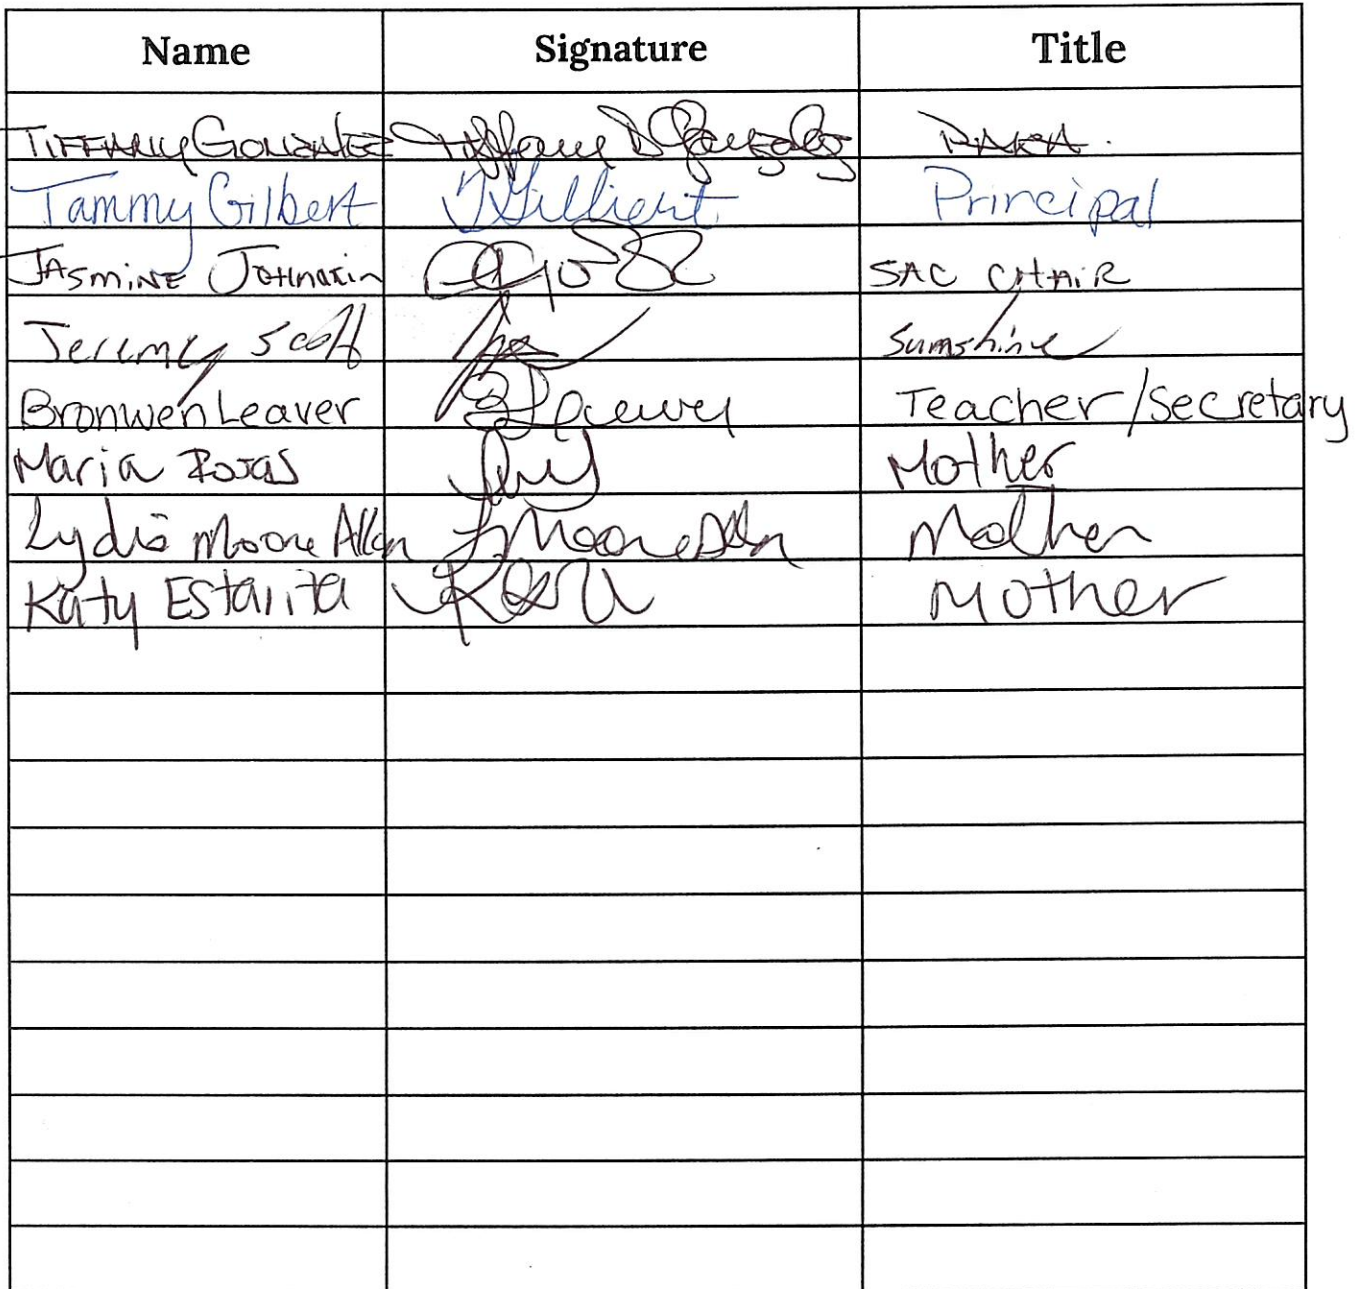 Name Signature Title
Tiffany Gonzalez Tiffany D Gonzalez
Tammy Gilbert TGilbert Principal
Jasmine SAC Chair
Jeremy Scott Sunshine
Bronwen Leaver BLeaver Teacher/Secretary
Maria Rojas Mother
Lydia Moore Allen L Moore Allen Mother
Katy Estarita Mother